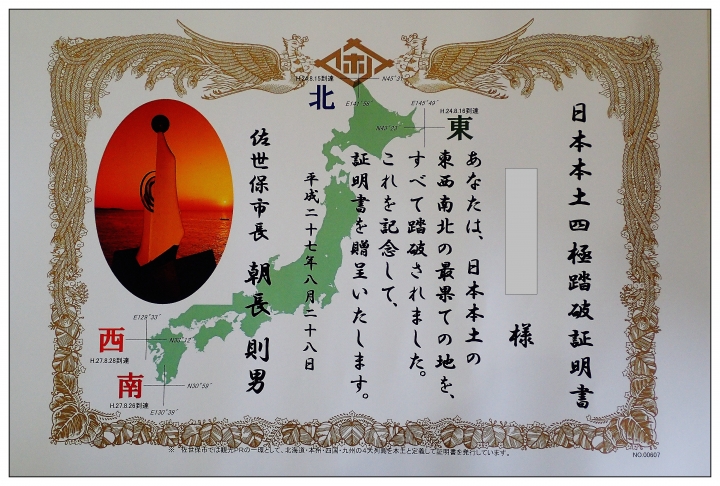 日本本土四極踏破証明書
様
あなたは、日本本土の
東西南北の最果ての地を、
すべて踏破されました。
これを記念して、
証明書を贈呈いたします。
平成二十七年八月二十八日
佐世保市長 朝長則男
H.24.8.15到達
北
N45°31'
E141°56'
E145°49'
H.24.8.16到達
東
N43°23'
E129°33'
西
N33°12'
H.27.8.28到達
南
N30°59'
H.27.8.26到達
E130°39'
※ 佐世保市では観光PRの一環として、北海道・本州・四国・九州の4大列島を本土と定義して証明書を発行しています。
NO.00607